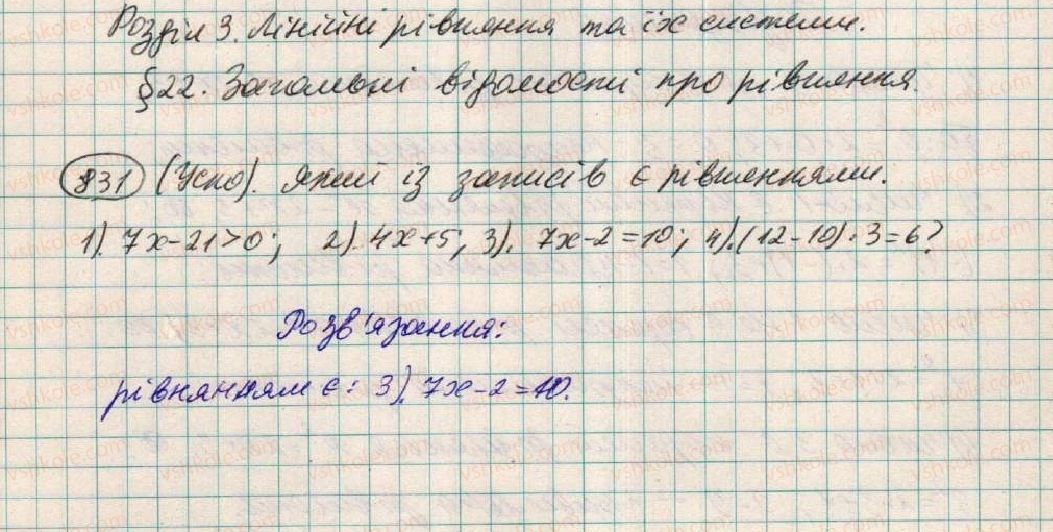 Розділ 3. Лінійні рівняння та їх системи.
§22. Загальні відомості про рівняння.
831 (Усно). Який із записів є рівняннями.
1). 7x-21>0; 2). 4x+5; 3). 7x-2=10; 4).(12-10)·3=6?
Розв'язання:
рівнянням є: 3). 7x-2=10.